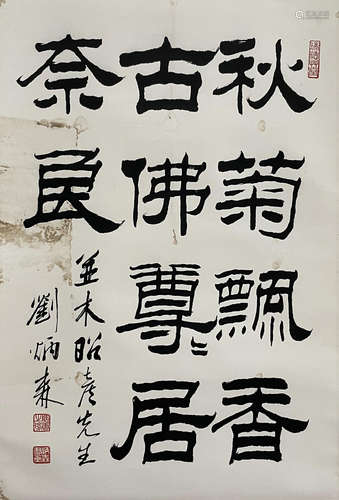 秋菊飘香
古佛尊々居
奈良
並木昭彦先生
劉炳森